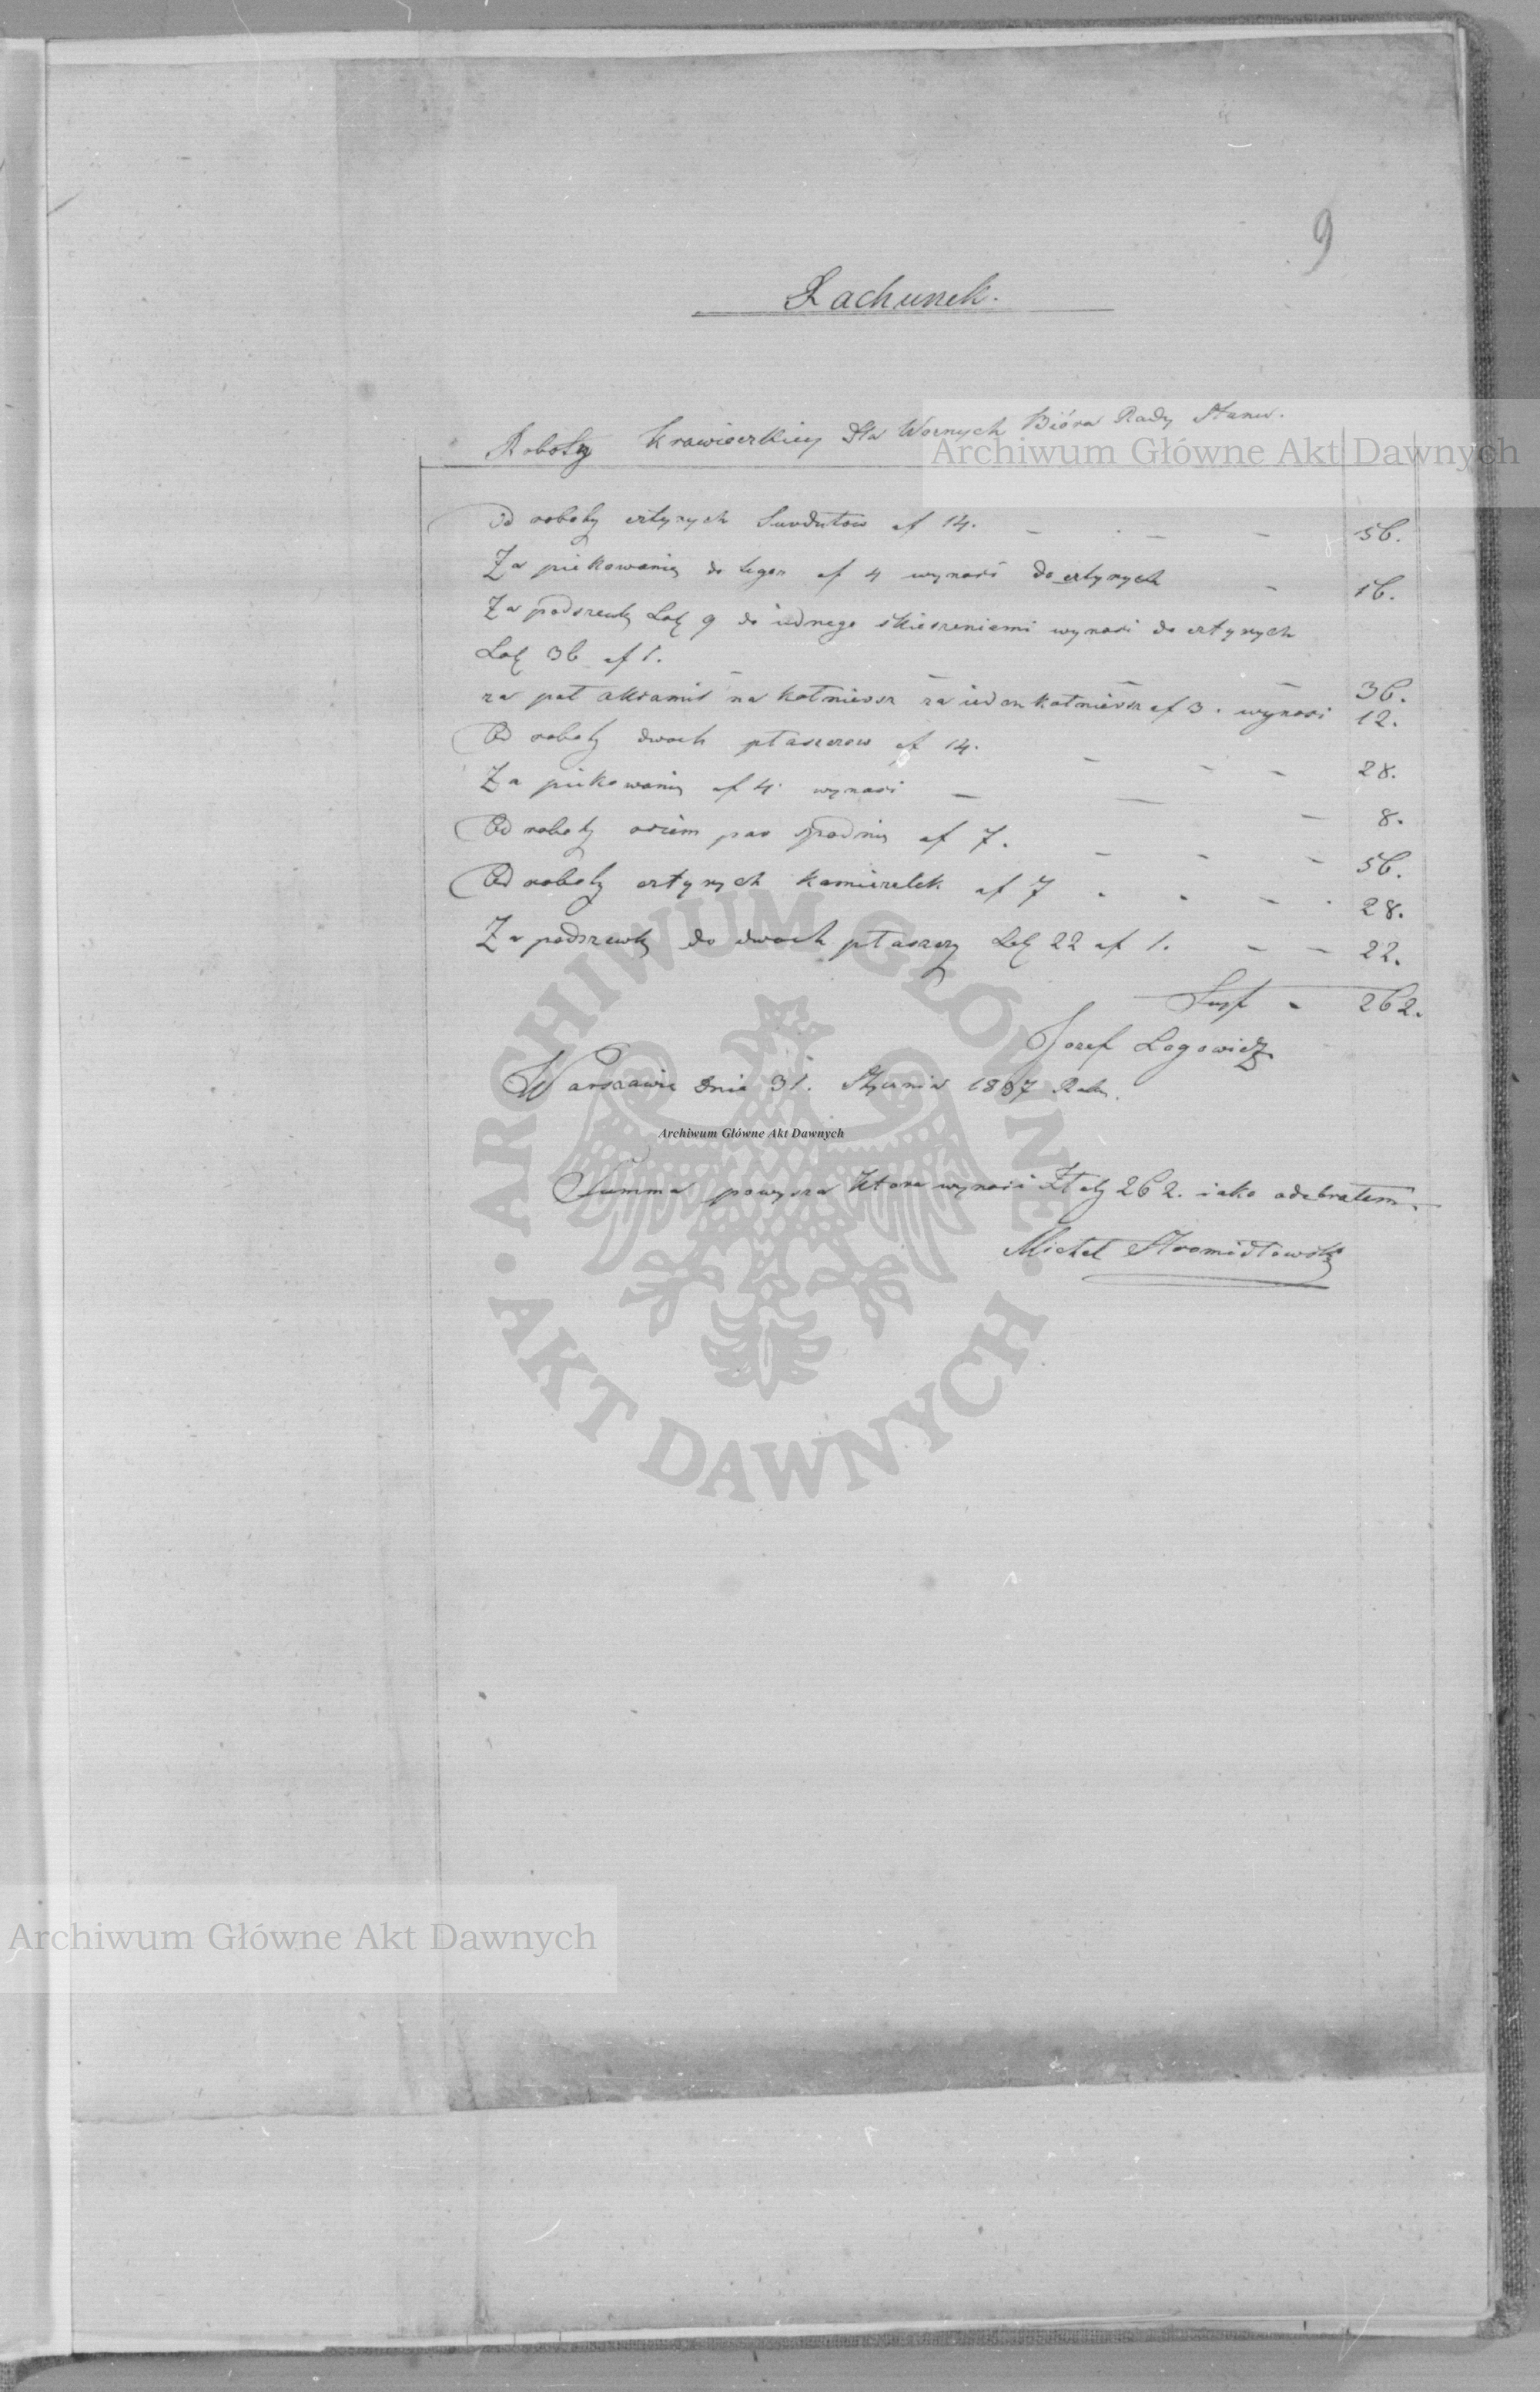 9
Rachunek.
Roboty Krawieckiey dla Woznych Bióra Rady Stanu.
Archiwum Główne Akt Dawnych
Od roboty cztyrych Surdutow af 14. - . - - 56.
Za pikowanie do tegoz af 4 wynosi do cztyrych - 16.
Za podszewkę Łok 9 do iednego skieszeniami wynosi do cztyrych
Łok 36 af 1. - - - - 36.
za pół aksamit na kołniersz za ieden kołniersz af 3. wynosi 12.
Od roboty dwoch płaszczow af 14. - - - 28.
Za pikowanie af 4 wynosi - - - 8.
Od roboty osiem par spodnie af 7. - - - 56.
Od roboty cztyrych kamizelek af 7 - - - . 28.
Za podszewkę do dwoch płaszczy Łok 22 af 1. - - 22.
- 262.
Jozef Logowicz
Warszawie dnia 31. Stycznia 1837 Roku.
Archiwum Główne Akt Dawnych
Summa powysza Ktora wynosi Złoty 262. iako odebrałem.
Michał
ARCHIWUM GŁÓWNE
AKT DAWNYCH
Archiwum Główne Akt Dawnych